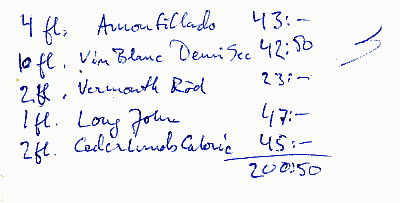 4 fl. Amontillado 43:-
10 fl. Vin Blanc Demi Sec 42:50
2 fl. Vermouth Röd 23:-
1 fl. Long John 47:-
2 fl. Cederlunds Caloric 45:-
200:50